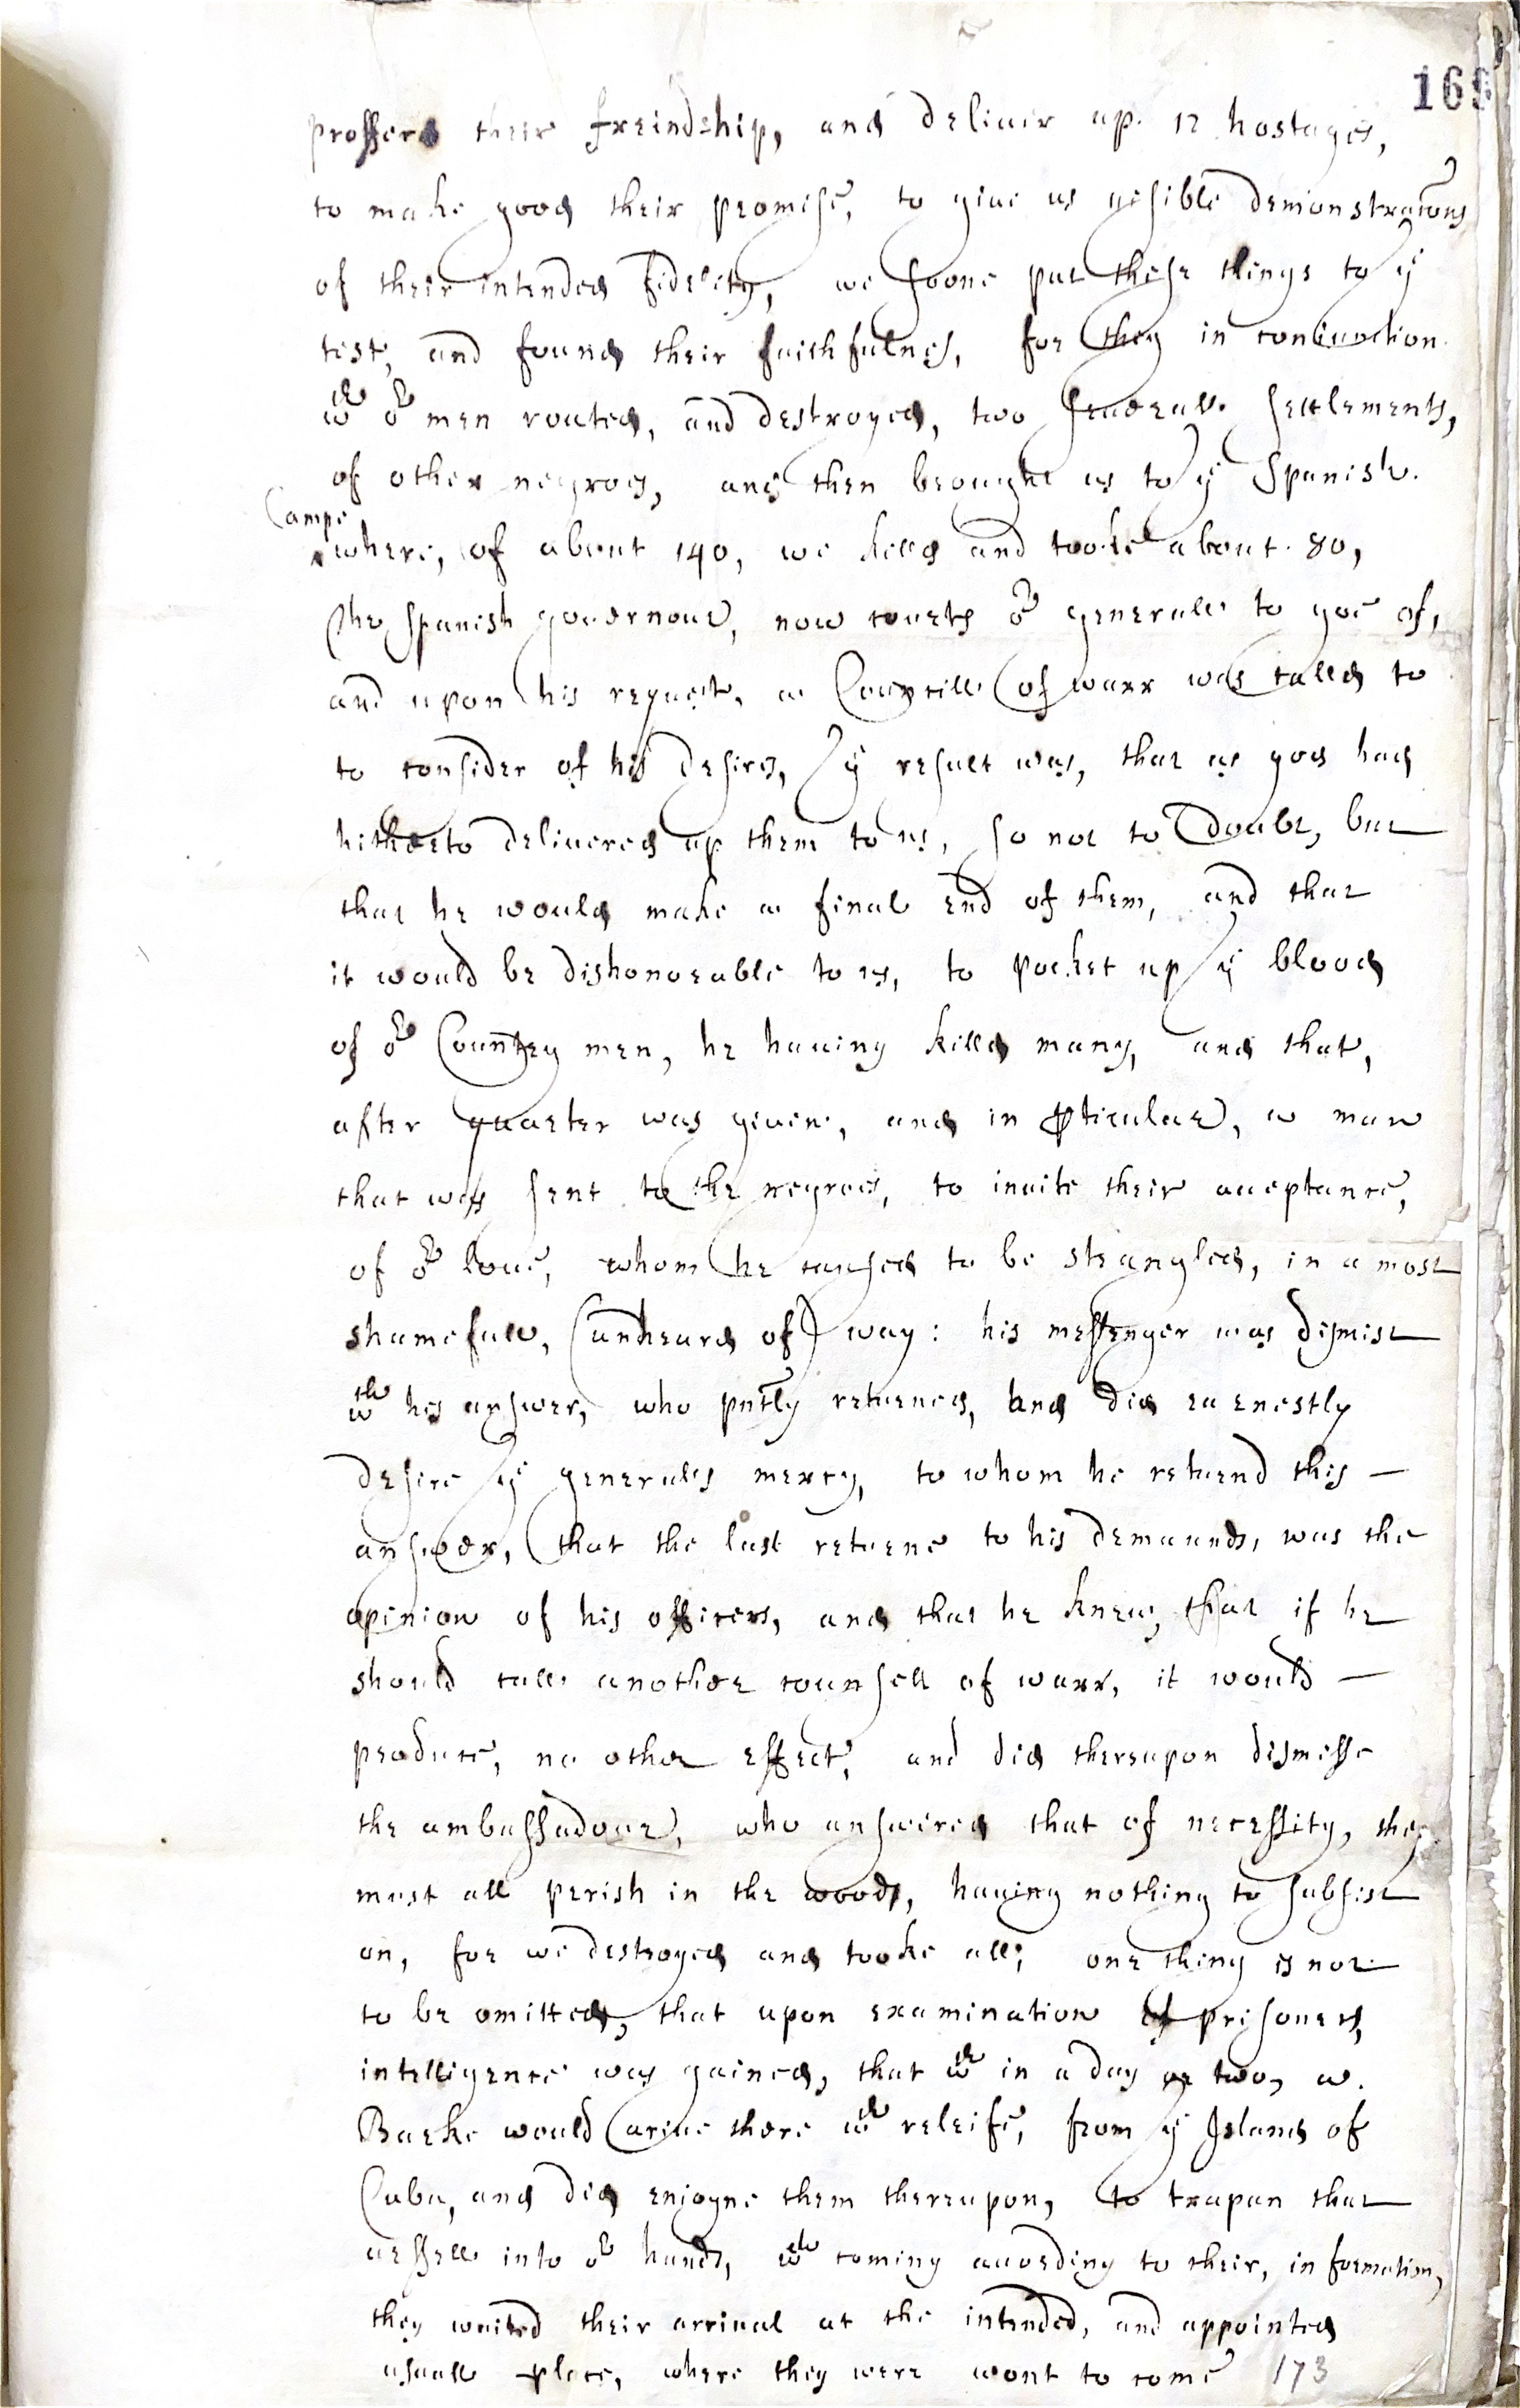 169
proffers their freindship, and deliuer up 12 hostages,
to make good their promise, to giue us visible demonstracions
of their intended fidelity, we soone put these things to yͤ
test, and found their faithfulnes, for they in coniunction
wᵗʰ oʳ men routed, and destroyed, two seuerall settlements,
of other negroes, and then brought us to yͤ Spanish
Campe
where, of about 140, we killd and tooke about 80,
the Spanish gouernour, now courts oʳ generall to goe of,
and upon his request, a Councill of warr was calld to
to consider of his desires, yͤ result was, that as god had
hitherto deliuered up them to us, so not to doubt, but
that he would make a final end of them, and that
it would be dishonorable to us, to pocket up yͤ blood
of oʳ Country men, he hauing killd many, and that,
after quarter was giuen, and in pticular, a man
that was sent to the negroes, to inuite their acceptance,
of oʳ loue, whom he caused to be strangled, in a most
shamefull, (unheard of) way: his messenger was dismist
wᵗʰ his answer, who pntly returned, and did earnestly
desire yͤ generalls mercy, to whom he returnd this —
answer, that the last returne to his demaunds, was the
opinion of his officers, and that he knew, that if he
should call another counsell of warr, it would —
produce, no other effect, and did thereupon dismisse
the ambassadour, who answered that of necessity, they
must all perish in the woods, hauing nothing to subsist
on, for we destroyed and tooke all; one thing is not
to be omitted, that upon examination of prisoners,
intelligence was gained, that wᵗʰ in a day or two, a
Barke would ariue there wᵗʰ releife, from yͤ Island of
Cuba, and did enioyne them thereupon, to trapan that
uessell into oʳ hands, wᶜʰ coming according to their, information,
they waited their arriual at the intended, and appointed
usuall place, where they were wont to come 173